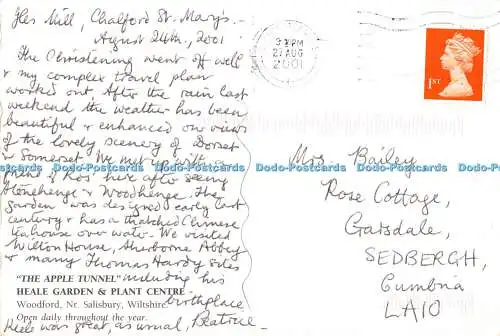 Iles Mill, Chalford St. Mary's.
August 24th., 2001
The Christening went off well
& my complex travel plan
worked out. After the rain last
weekend the weather has been
beautiful & enhanced our views
of the lovely scenery of Dorset
& Somerset. We met up with a
friend of Ros' here after seeing
Stonehenge & Woodhenge. The
garden was designed early last
century & has a thatched Chinese
teahouse over water. We visited
Wilton House, Sherborne Abbey
& many Thomas Hardy sites
including his
birthplace.
"THE APPLE TUNNEL"
HEALE GARDEN & PLANT CENTRE
Woodford, Nr. Salisbury, Wiltshire.
Open daily throughout the year.
Heale was great, as usual, Beatrice
3 PM
27 AUG
2001
1ST
Mrs. Bailey
Rose Cottage,
Garsdale,
SEDBERGH,
Cumbria
LA10
Dodo-Postcards Dodo-Postcards Dodo-Postcards Dodo-Postcards